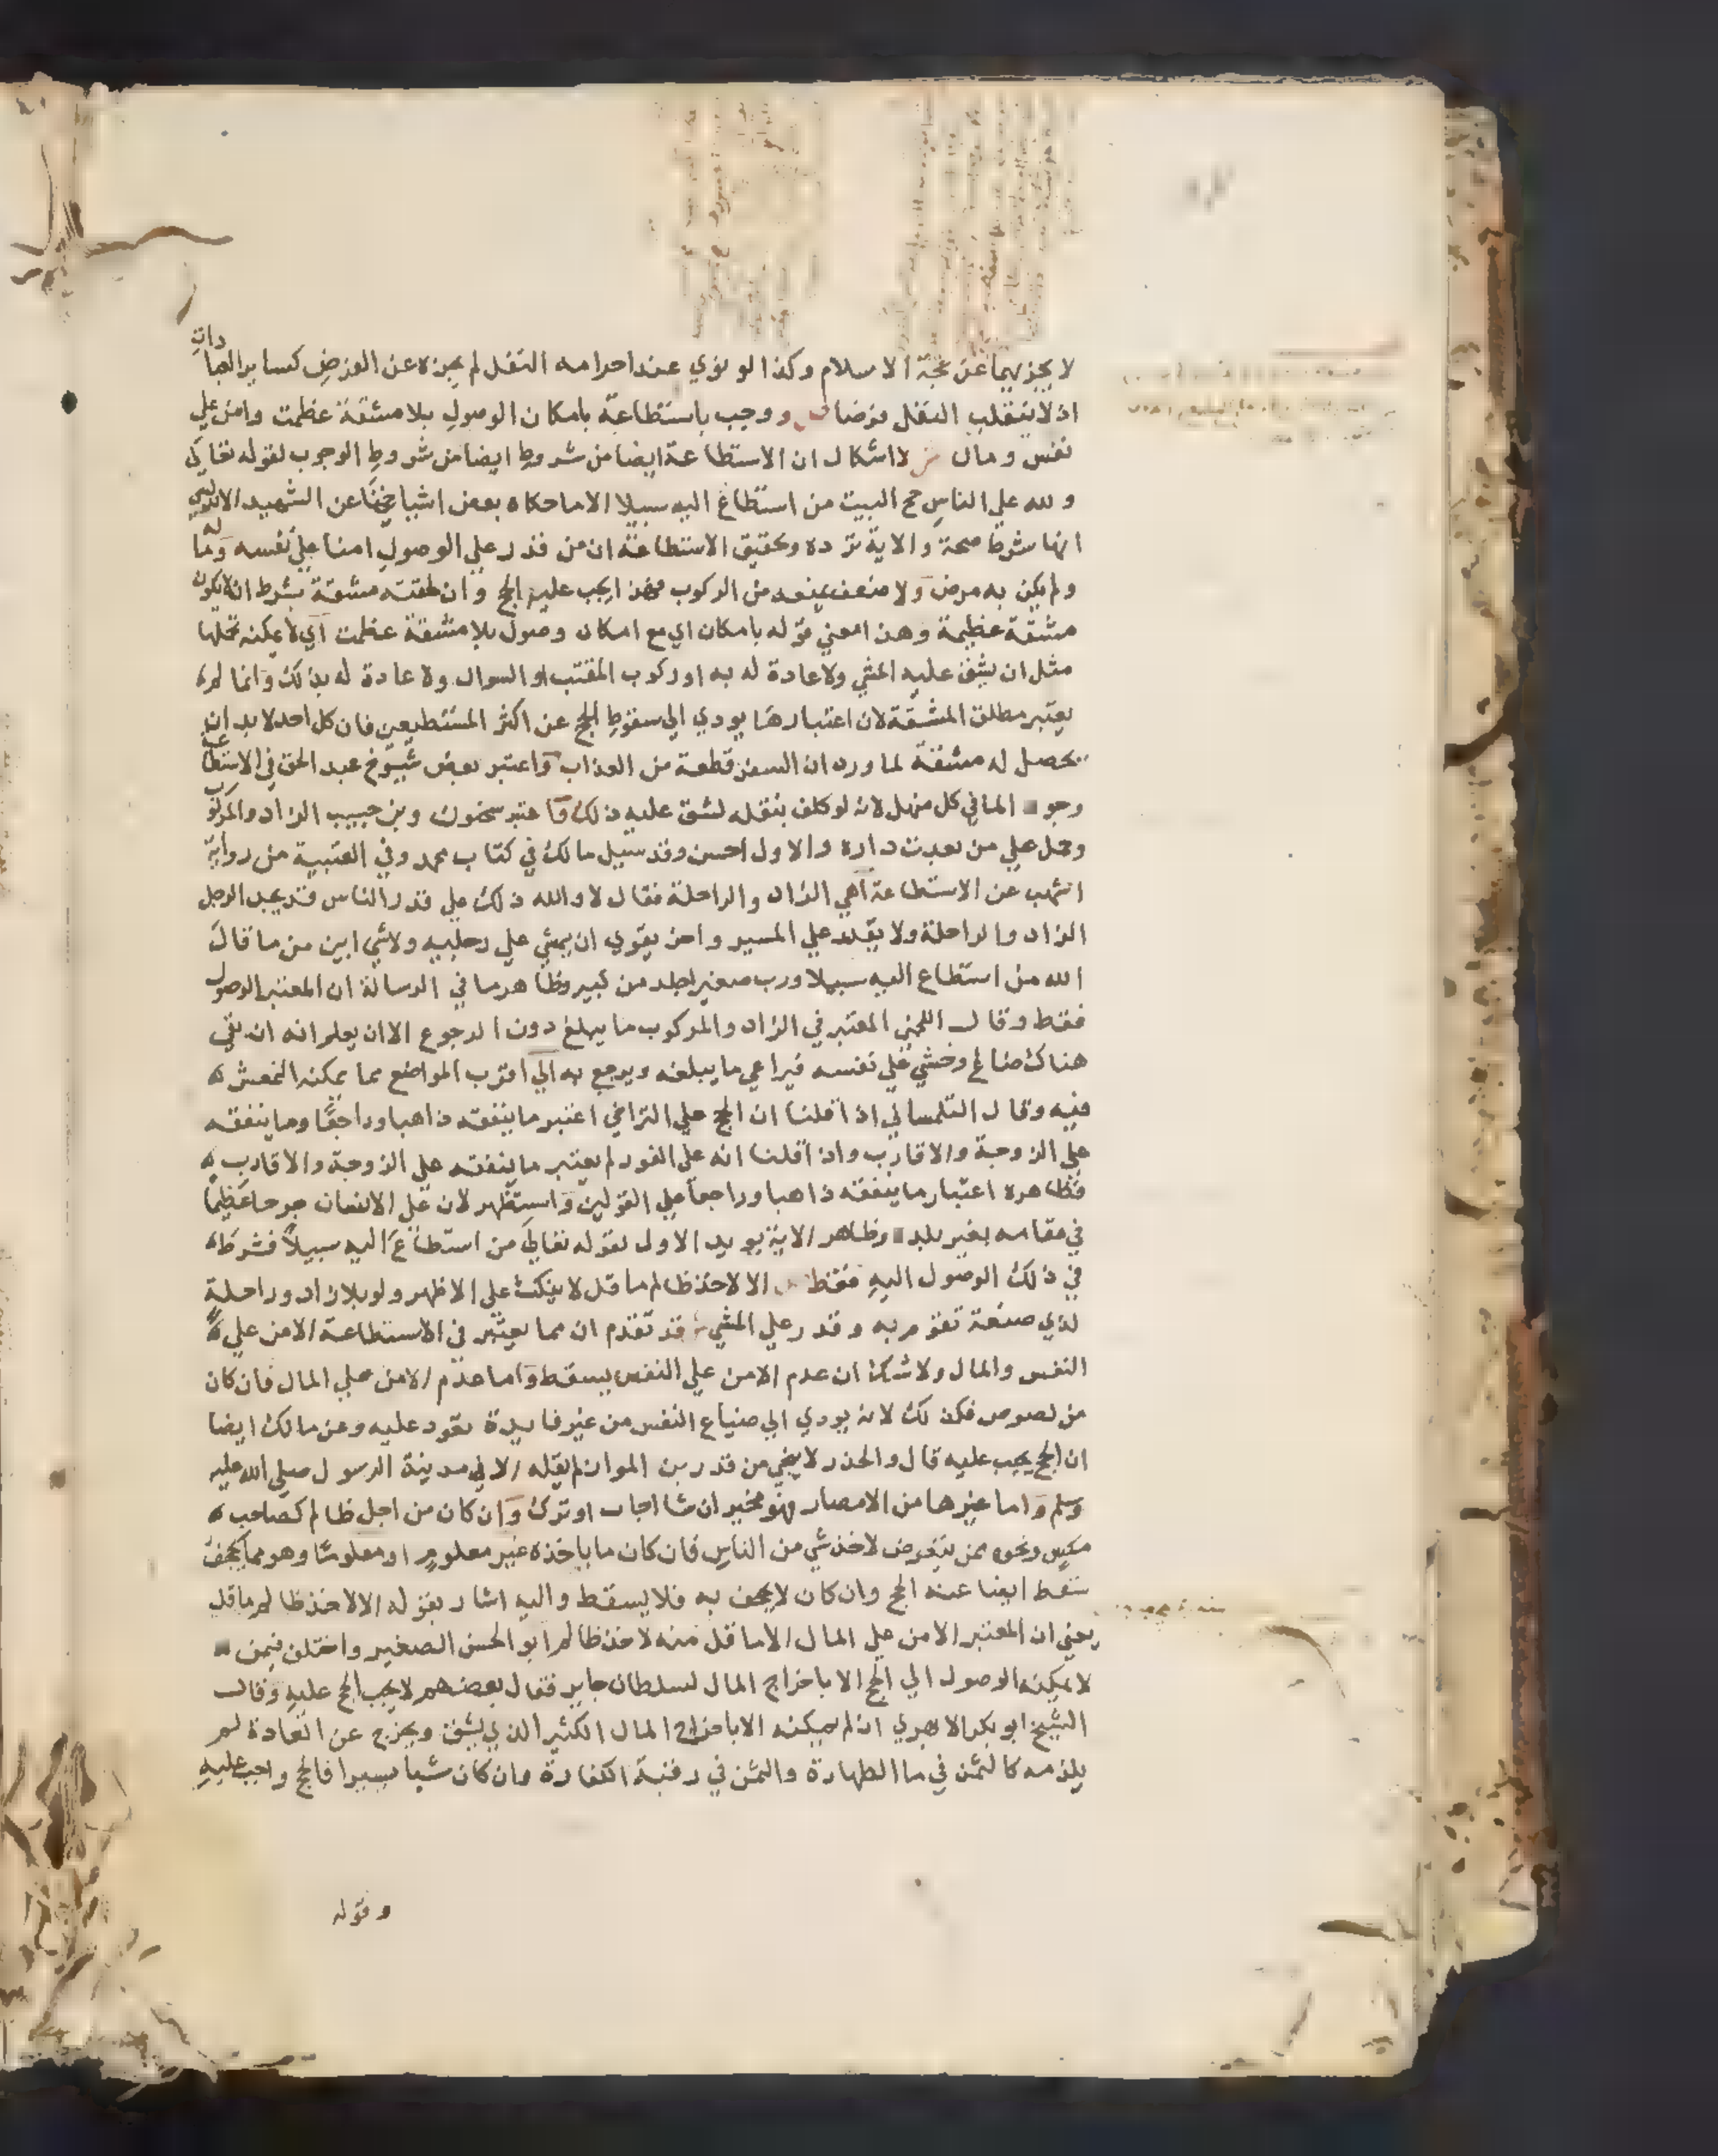 لا يجزيهما عن حجة الاسلام وكذا لو نوي عند احرامه النفل لم يجزه عن الفرض كساير العبادات
اذ لا ينقلب النفل فرضا ص ووجب باستطاعة بامكان الوصول بلا مشقة عظمت وامن علي
نفس ومال ش لا اشكال ان الاستطاعة ايضا من شروط ايضا من شروط الوجوب لقوله تعالي
ولله علي الناس حج البيت من استطاع اليه سبيلا الا ما حكاه بعض اشياخنا عن الشهيد الاندلسي
انها شرط صحة والاية ترده وتحقيق الاستطاعة ان من قدر علي الوصول امنا علي نفسه وماله
ولم يكن به مرض ولا ضعف يمنعه من الركوب فهذا يجب عليه الحج وان لحقته مشقة بشرط ان لا يكون
مشقة عظيمة وهذا معني قوله بامكان اي مع امكان وصول بلا مشقة عظمت اي لا يمكنه تحملها
مثل ان يشق عليه المشي ولا عادة له به او ركوب المقتب او السوال ولا عادة له بذلك وانما لم
يعتبر مطلق المشقة لان اعتبارها يودي الي سقوط الحج عن اكثر المستطيعين فان كل احد لا بد ان
يحصل له مشقة لما ورد ان السفر قطعة من العذاب واعتبر بعض شيوخ عبد الحق في الاستطاعة
وجود الما في كل منهل لانه لو كلف بنقله لشق عليه ذلك واعتبر سحنون وبن حبيب الزاد والمركوب
وحمل علي من بعدت داره والاول احسن وقد سيل مالك في كتاب محمد وفي العتبية من رواية
اشهب عن الاستطاعة اهي الزاد والراحلة فقال لا والله ذلك علي قدر الناس قد يجد الرجل
الزاد والراحلة ولا يقدر علي المسير واخر يقوي ان يمشي علي رجليه ولا شي ابين من ما قال
الله من استطاع اليه سبيلا ورب صغير اجلد من كبير وظاهر ما في الرسالة ان المعتبر الوصول
فقط وقال اللخمي المعتبر في الزاد والمركوب ما يبلغ دون الرجوع الا ان يعلم انه ان بقي
هناك ضاع وخشي علي نفسه فيراعي ما يبلغه ويرجع به الي اقرب المواضع مما يمكنه التمعش
فيه وقال التلمساني اذا قلنا ان الحج علي التراخي اعتبر ما ينفقه ذاهبا وراجعا وما ينفقه
علي الزوجة والاقارب واذا قلنا انه علي الفور لم يعتبر ما ينفقه علي الزوجة والاقارب
فظاهره اعتبار ما ينفقه ذاهبا وراجعا علي القولين واستظهر لان علي الانسان حرجا عظيما
في مقامه بغير بلده وظاهر الاية يويد الاول لقوله تعالي من استطاع اليه سبيلا فشرط
في ذلك الوصول اليه فقط ص الا لاخذ ظالم ما قل لا ينكث علي الاظهر ولو بلا زاد وراحلة
لذي صنعة تقوم به وقدر علي المشي ش قد تقدم ان مما يعتبر في الاستطاعة الامن علي
النفس والمال ولا شك ان عدم الامن علي النفس يسقط واما عدم الامن علي المال فان كان
من لصوص فكذلك لانه يودي الي ضياع النفس من غير فايدة تعود عليه وعن مالك ايضا
ان الحج يجب عليه قال والحذر لا ينجي من قدر بن المواز لم يقله الا في مدينة الرسول صلي الله عليه
وسلم واما غيرها من الامصار فهو مخير ان شا اجاب او ترك وان كان من اجل ظالم كصاحب
مكس ونحوه ممن يتعرض لاخذ شي من الناس فان كان ما ياخذه غير معلوم او معلوما وهو مما يجحف
سقط ايضا عنه الحج وان كان لا يجحف به فلا يسقط واليه اشار بقوله الا لاخذ ظالم ما قل
يعني ان المعتبر الامن علي المال الا ما قل منه لاخذ ظالم ابو الحسن الصغير واختلف فيمن
لا يمكنه الوصول الي الحج الا باخراج المال لسلطان جاير فقال بعضهم لا يجب الحج عليه وقال
الشيخ ابو بكر الابهري ان لم يمكنه الا باخراج المال الكثير الذي يشق ويخرج عن العادة لم
يلزمه كالثمن في ما الطهارة والثمن في رقبة الكفارة وان كان شيا يسيرا فالحج واجب عليه
وقوله